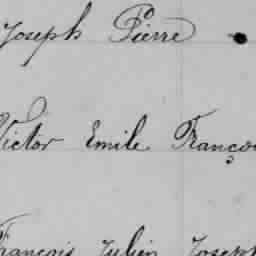 Joseph Pierre
Victor Emile Franço
François Julien Joseph